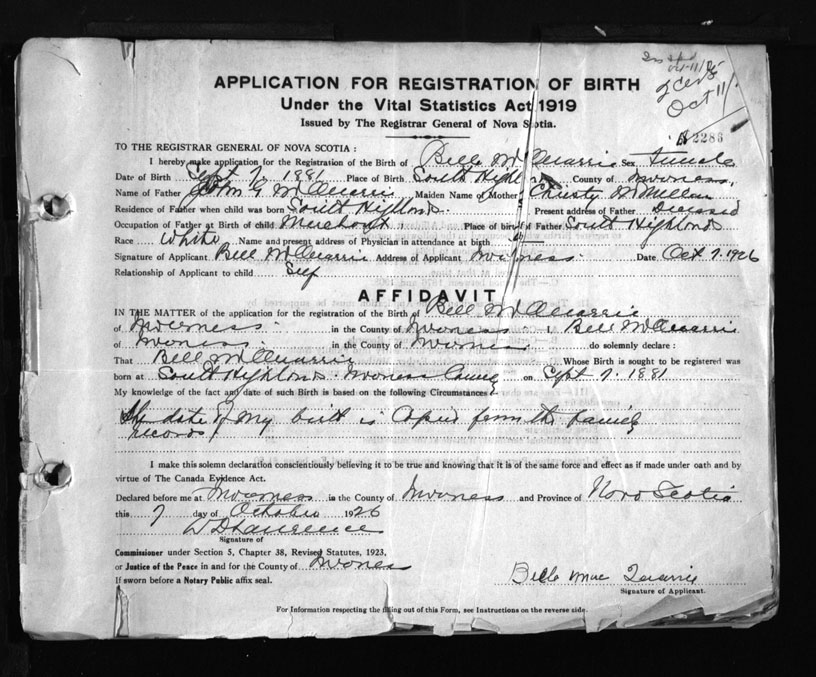 Oct 11/
2 certs
Oct 11/
APPLICATION FOR REGISTRATION OF BIRTH
Under the Vital Statistics Act, 1919
Issued by The Registrar General of Nova Scotia.
2286
TO THE REGISTRAR GENERAL OF NOVA SCOTIA :
I hereby make application for the Registration of the Birth of Belle McQuarrie Sex Female
Date of Birth Sept 7, 1881 Place of Birth South Highlands County of Inverness.
Name of Father John G McQuarrie Maiden Name of Mother Christy McMillan
Residence of Father when child was born South Highlands. Present address of Father Deceased
Occupation of Father at Birth of child Merchant Place of birth of Father South Highlands
Race White Name and present address of Physician in attendance at birth
Signature of Applicant Bell McQuarrie Address of Applicant Inverness. Date Oct 7. 1926
Relationship of Applicant to child Self
AFFIDAVIT
IN THE MATTER of the application for the registration of the Birth of Bell McQuarrie
of Inverness in the County of Inverness I, Bell McQuarrie
of Inverness in the County of Inverness do solemnly declare :
That Bell McQuarrie Whose Birth is sought to be registered was
born at South Highlands Inverness County on Sept 7. 1881
My knowledge of the fact and date of such Birth is based on the following Circumstances :
The date of my birth is copied from the family
records
I make this solemn declaration conscientiously believing it to be true and knowing that it is of the same force and effect as if made under oath and by
virtue of The Canada Evidence Act.
Declared before me at Inverness in the County of Inverness and Province of Nova Scotia
this 7 day of October 1926
W D Lawrence
Signature of
Commissioner under Section 5, Chapter 38, Revised Statutes, 1923,
or Justice of the Peace in and for the County of Inverness
If sworn before a Notary Public affix seal.
Belle Mac Quarrie
Signature of Applicant.
For Information respecting the filling out of this Form, see Instructions on the reverse side.